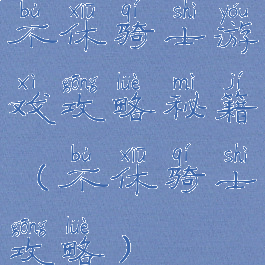 bú xiū qí shì yóu
不休骑士游
xì gōng lüè mì jí
戏攻略秘籍
bú xiū qí shì
（不休骑士
gōng lüè
攻略）